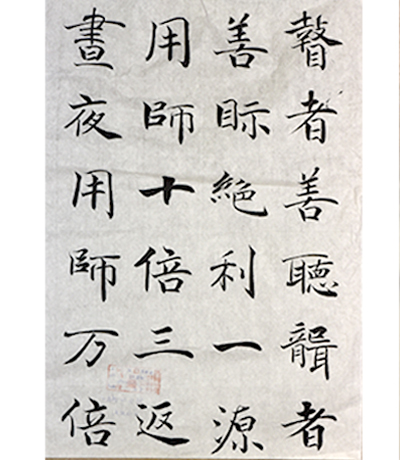 瞽者善聽聾者
善眎絶利一源
用師十倍三返
晝夜用師万倍